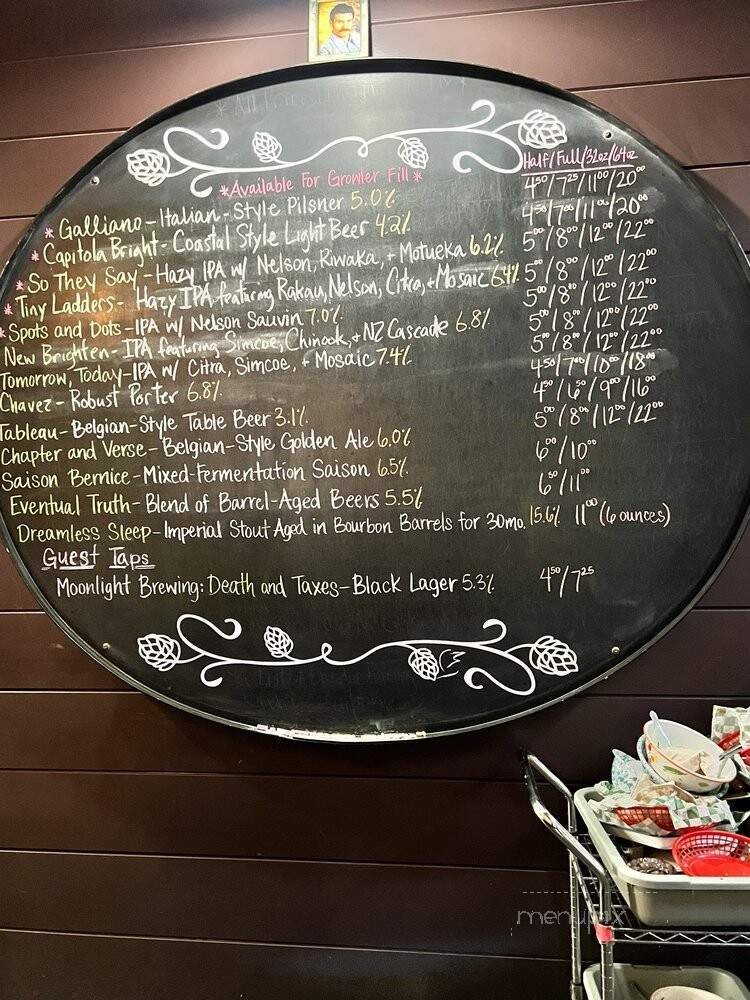 Half/Full/32oz/64oz
*Available For Growler Fill*
* Galliano - Italian-Style Pilsner 5.0% 4.50/7.25/11.00/20.00
* Capitola Bright - Coastal Style Light Beer 4.2% 4.50/7.00/11.00/20.00
* So They Say - Hazy IPA w/ Nelson, Riwaka, + Motueka 6.2% 5.00/8.00/12.00/22.00
* Tiny Ladders - Hazy IPA featuring Rakau, Nelson, Citra, + Mosaic 6.4% 5.00/8.00/12.00/22.00
* Spots and Dots - IPA w/ Nelson Sauvin 7.0% 5.00/8.00/12.00/22.00
New Brighten - IPA featuring Simcoe, Chinook, + NZ Cascade 6.8% 5.00/8.00/12.00/22.00
Tomorrow, Today - IPA w/ Citra, Simcoe, + Mosaic 7.4% 5.00/8.00/12.00/22.00
Chavez - Robust Porter 6.8% 4.50/7.00/10.00/18.00
Tableau - Belgian-Style Table Beer 3.1% 4.50/6.50/9.00/16.00
Chapter and Verse - Belgian-Style Golden Ale 6.0% 5.00/8.00/12.00/22.00
Saison Bernice - Mixed-Fermentation Saison 6.5% 6.00/10.00
Eventual Truth - Blend of Barrel-Aged Beers 5.5% 6.50/11.00
Dreamless Sleep - Imperial Stout Aged in Bourbon Barrels for 30mo. 15.6% 11.00 (6 ounces)
Guest Taps
Moonlight Brewing: Death and Taxes - Black Lager 5.3% 4.50/7.25
menupix